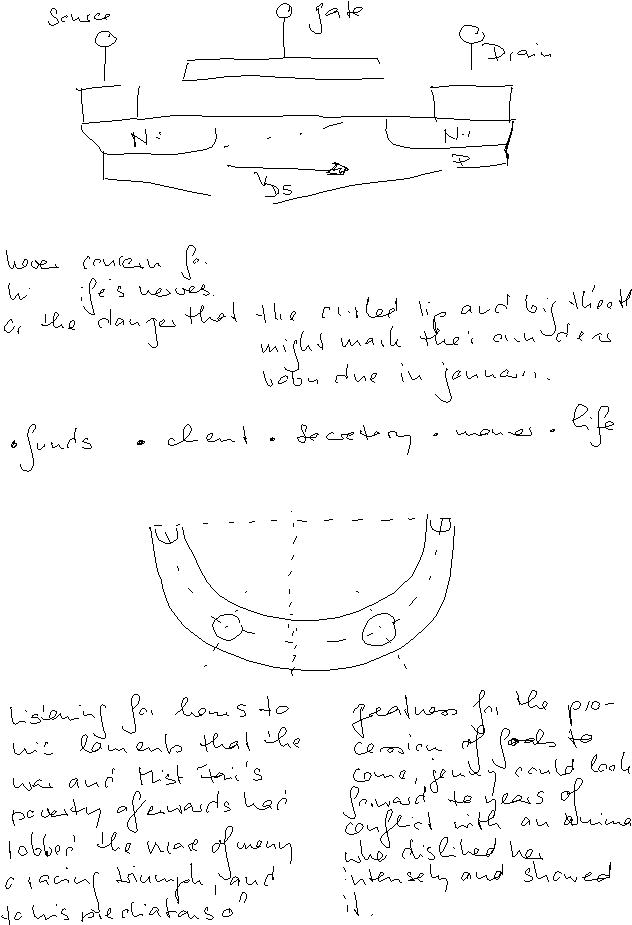 Source
gate
Drain
N
N
P
VDS
concern for
nerves.
or the danger that the curled lip and big theeth
might mark their own
due in
• funds • client • secretary • • life
Listening for hours to
his laments that the
war and Mist Fair's
poverty afterwards had
robbed the of many
a racing triumph, and
to his predictions of
greatness for the pro-
cession of foals to
come, jenny could look
forward to years of
conflict with an
who disliked her
intensely and showed
it.